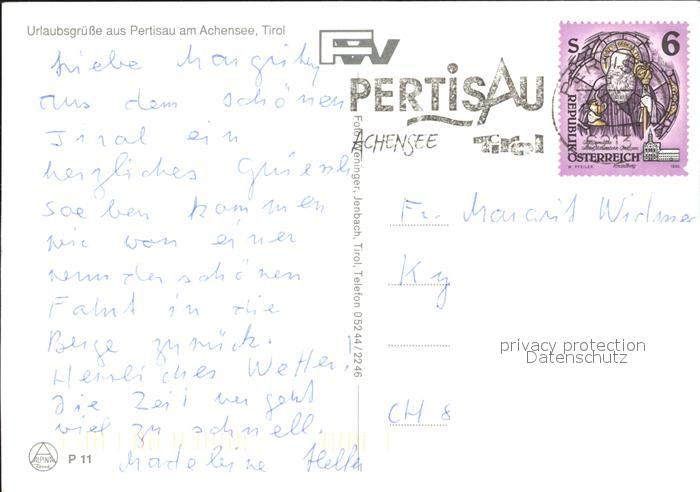 Urlaubsgrüße aus Pertisau am Achensee, Tirol
Liebe Margrith
aus dem schönen
Tirol ein
herzliches Grüessli
soeben kommen
wir von einer
wunderschönen
Fahrt in die
Berge zurück.
Herrliches Wetter!
Die Zeit vergeht
viel zu schnell.
Madeleine
ALPINA
P 11
Foto Jenbach, Tirol, Telefon 05244/2246
PERTISAU
ACHENSEE Tirol
S 6
REPUBLIK
ÖSTERREICH
Fr. Margrit Widmer
privacy protection
Datenschutz
CH 8